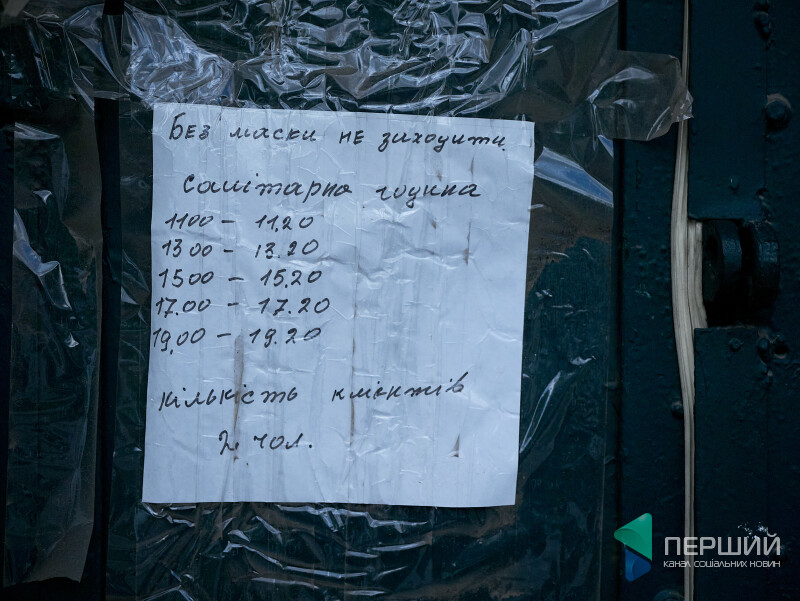 Без маски не заходити.
Санітарна година
1100 - 11.20
1300 - 13.20
1500 - 15.20
17.00 - 17.20
19.00 - 19.20
кількість клієнтів
2 чол.
ПЕРШИЙ
КАНАЛ СОЦІАЛЬНИХ НОВИН